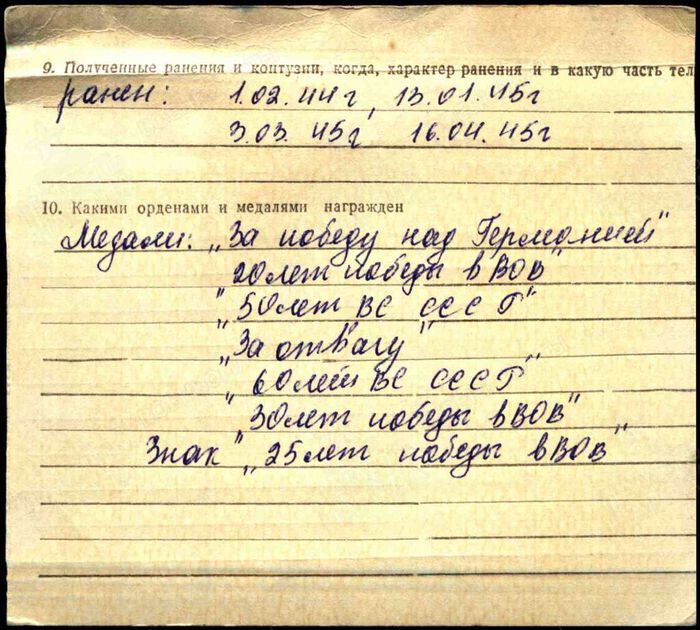 9. Полученные ранения и контузии, когда, характер ранения и в какую часть тел
ранен: 1.02.44г, 13.01.45г
3.03.45г 16.04.45г
10. Какими орденами и медалями награжден
Медали: „За победу над Германией"
„20лет победы в ВОВ"
„50лет ВС СССР"
„За отвагу"
„60лет ВС СССР"
„30лет победы в ВОВ"
Знак „25лет победы в ВОВ"